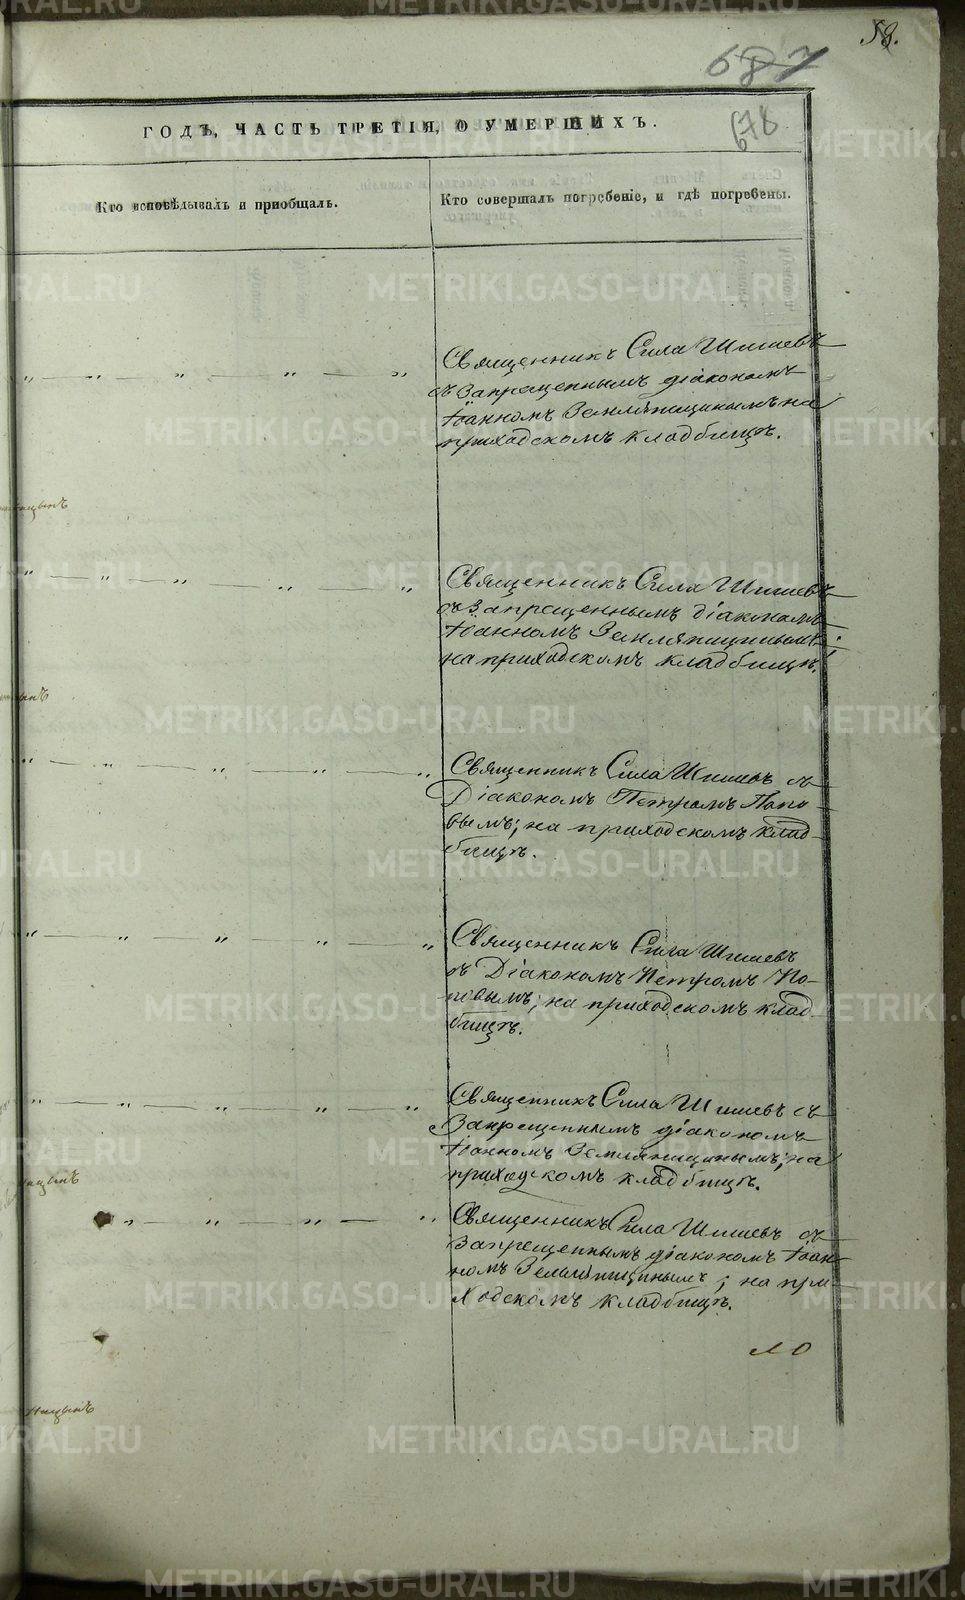 58.
687
678
ГОДЪ, ЧАСТЬ ТРЕТІЯ, О УМЕРШИХЪ.
Кто исповѣдывалъ и пріобщалъ.
Кто совершалъ погребеніе, и гдѣ погребены.
Священникъ Сила Шишевъ
съ запрещеннымъ діакономъ
Іоанномъ Земляницынымъ на
приходскомъ кладбищѣ.
Священникъ Сила Шишевъ
съ запрещеннымъ діакономъ
Іоанномъ Земляницынымъ;
на приходскомъ кладбищѣ.
Священникъ Сила Шишевъ съ
Діакономъ Петромъ Попо-
вымъ; на приходскомъ клад-
бищѣ.
Священникъ Сила Шишевъ
съ Діакономъ Петромъ По-
повымъ; на приходскомъ клад-
бищѣ.
Священникъ Сила Шишевъ съ
Запрещеннымъ діакономъ
Іоанномъ Земляницынымъ; на
приходскомъ кладбищѣ.
Священникъ Сила Шишевъ съ
Запрещеннымъ діакономъ Іоан-
номъ Земляницынымъ; на при-
ходскомъ кладбищѣ.
METRIKI.GASO-URAL.RU